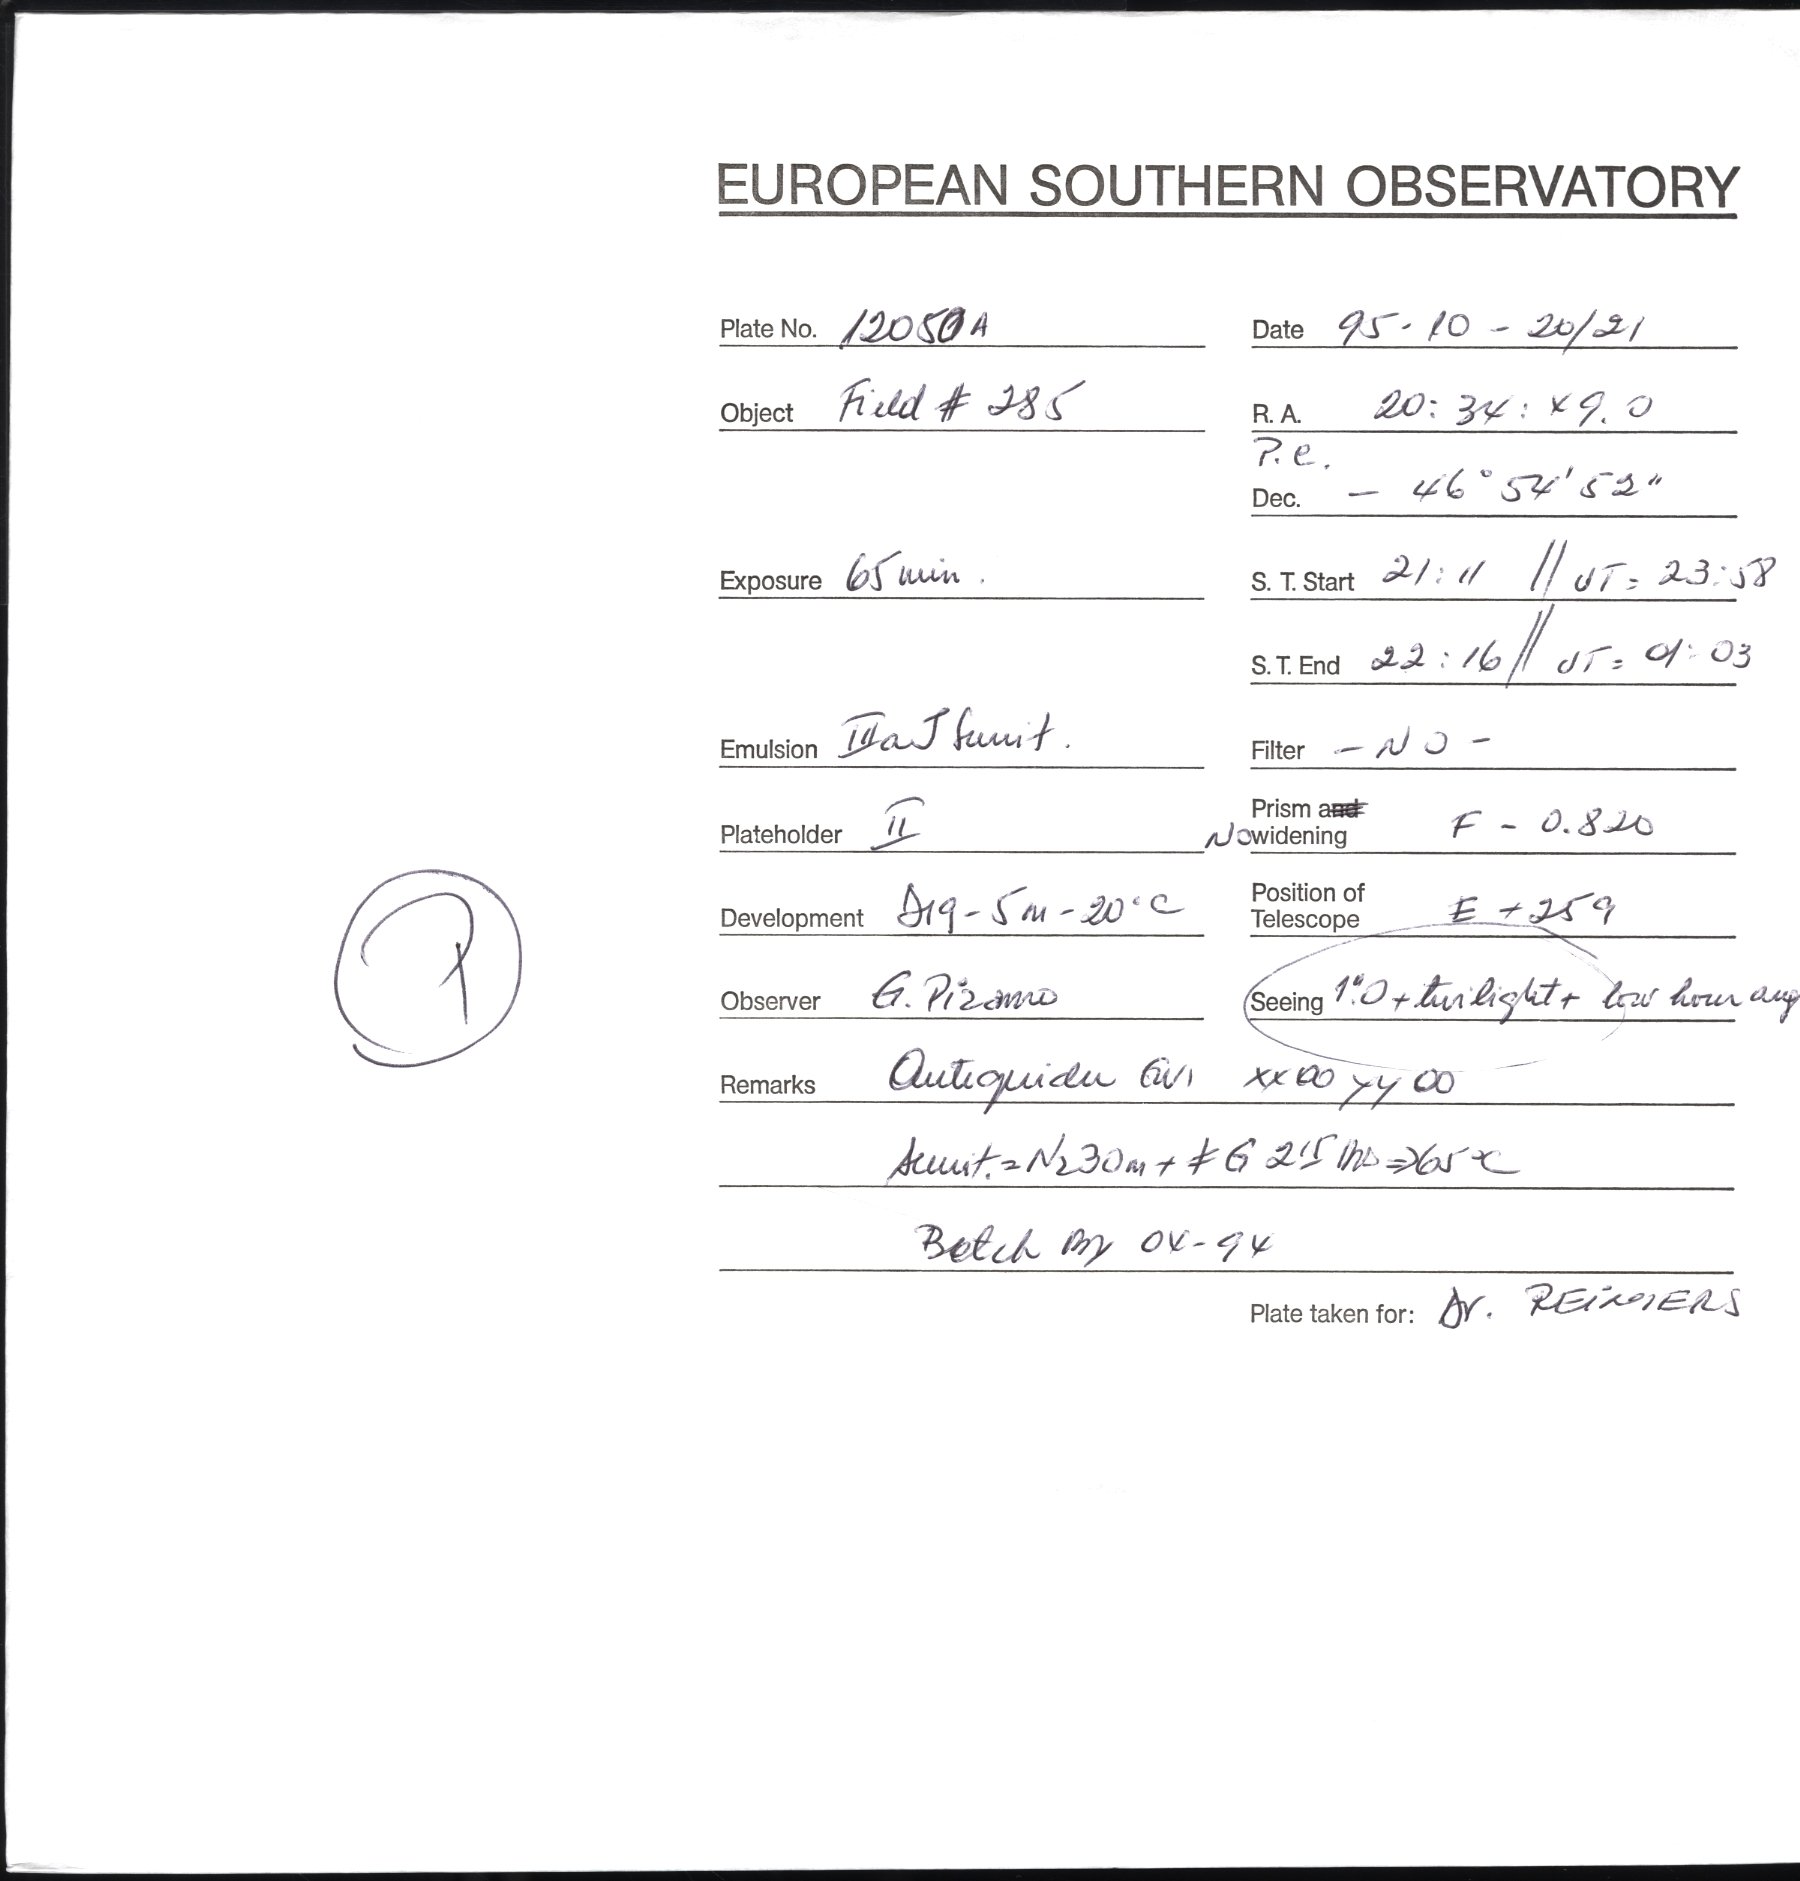 EUROPEAN SOUTHERN OBSERVATORY
Plate No. 12050A Date 95-10-20/21
Object Field # 285 R. A. 20:34:49.0
P.e.
Dec. - 46° 54' 52"
Exposure 65 min. S. T. Start 21:11 // UT= 23:58
S. T. End 22:16 // UT= 01:03
Emulsion IIIaJ Sensit. Filter - NO -
Plateholder II Prism and No widening F - 0.820
Development D19 - 5m - 20°C Position of Telescope E +259
Observer G. Pizarro Seeing 1".0 + twilight + low hour ang
Remarks Autoguider xx00 yy00
Sensit. = N2 30m + G 2 65°C
Batch 04-94
Plate taken for: Dr. REIMERS